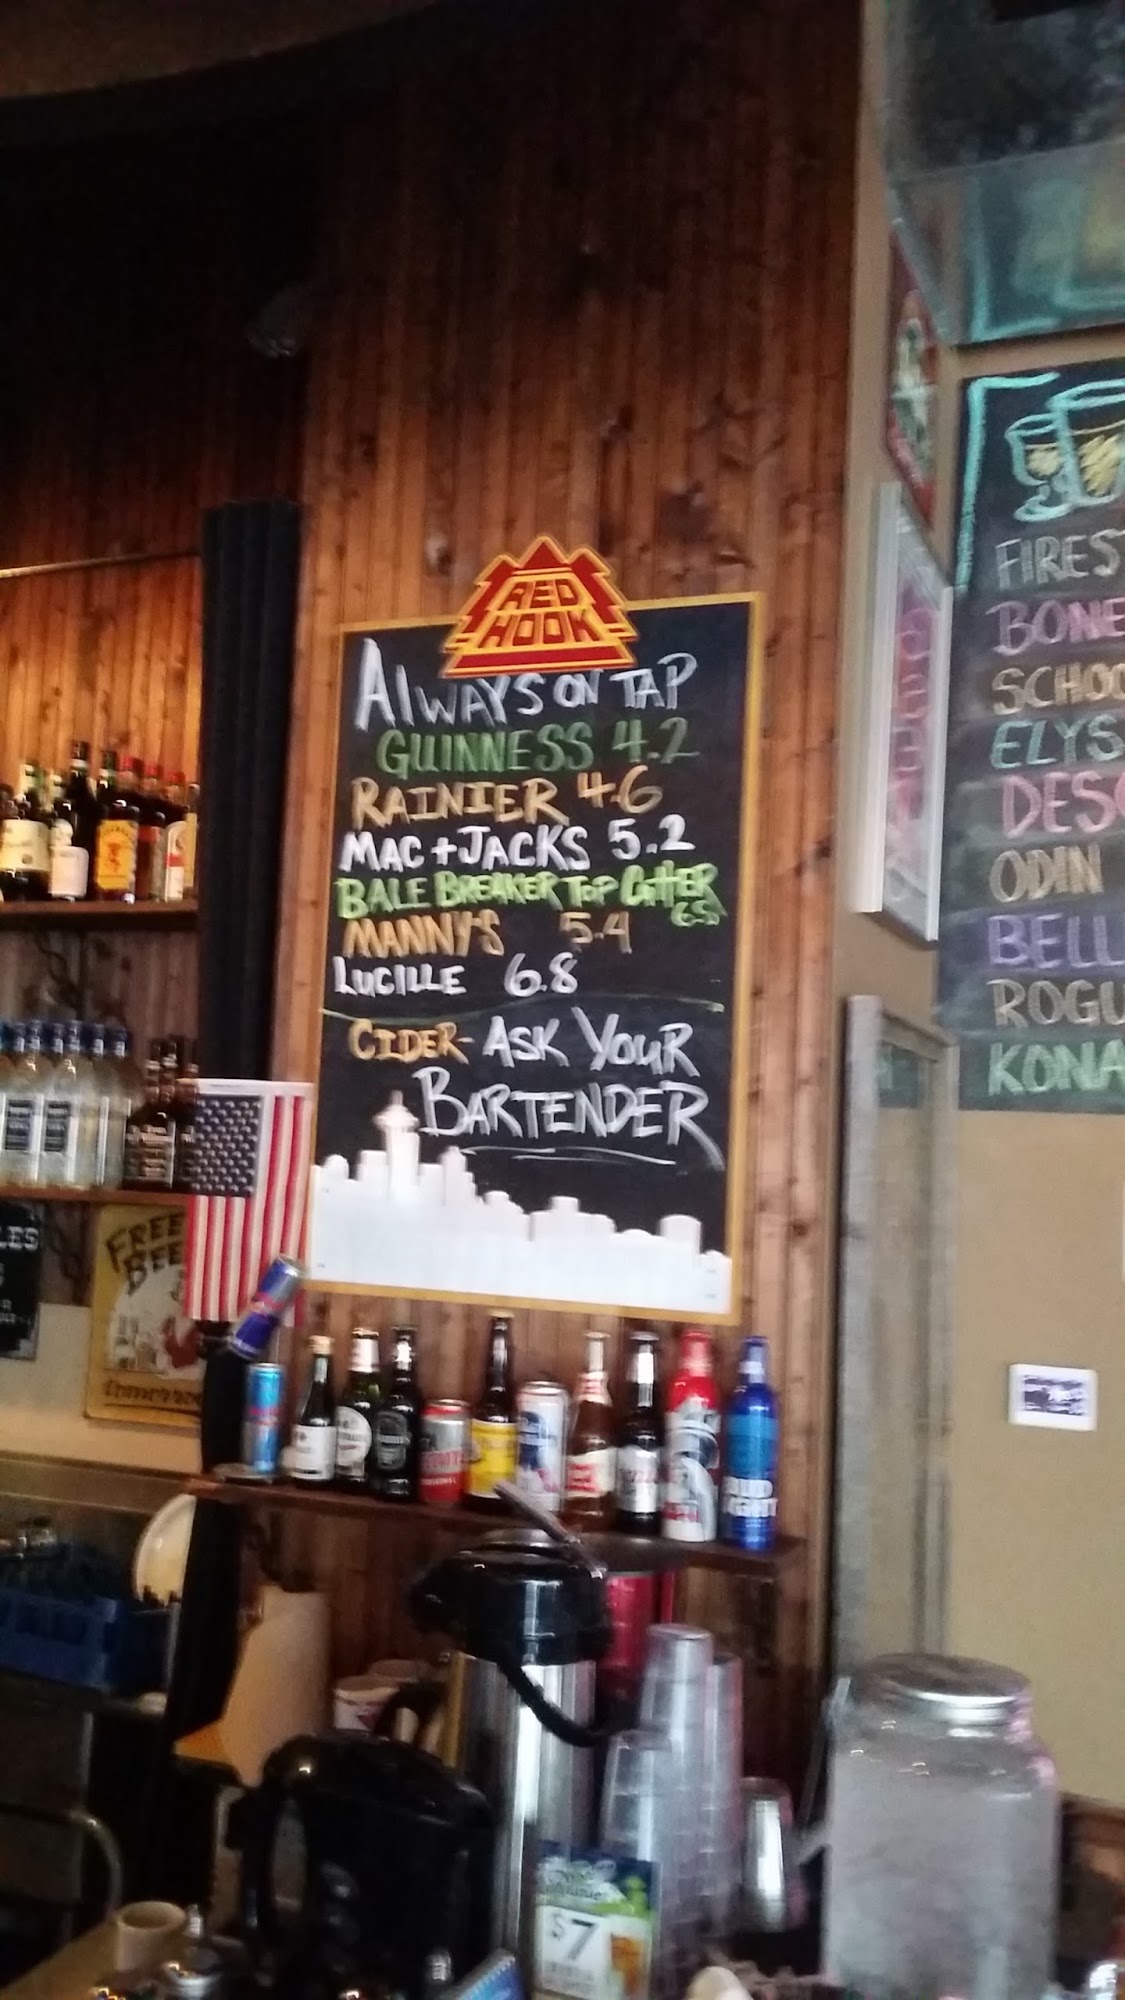 RED
HOOK
ALWAYS ON TAP
GUINNESS 4.2
RAINIER 4.6
MAC + JACKS 5.2
BALE BREAKER TOP CUTTER
6.5
MANNY'S 5.4
LUCILLE 6.8
CIDER- ASK YOUR
BARTENDER
FIREST
BONE
SCHOO
ELYS
DESC
ODIN
BELL
ROGU
KONA
FREE
BEE
LES
BUD
LIGHT
$7